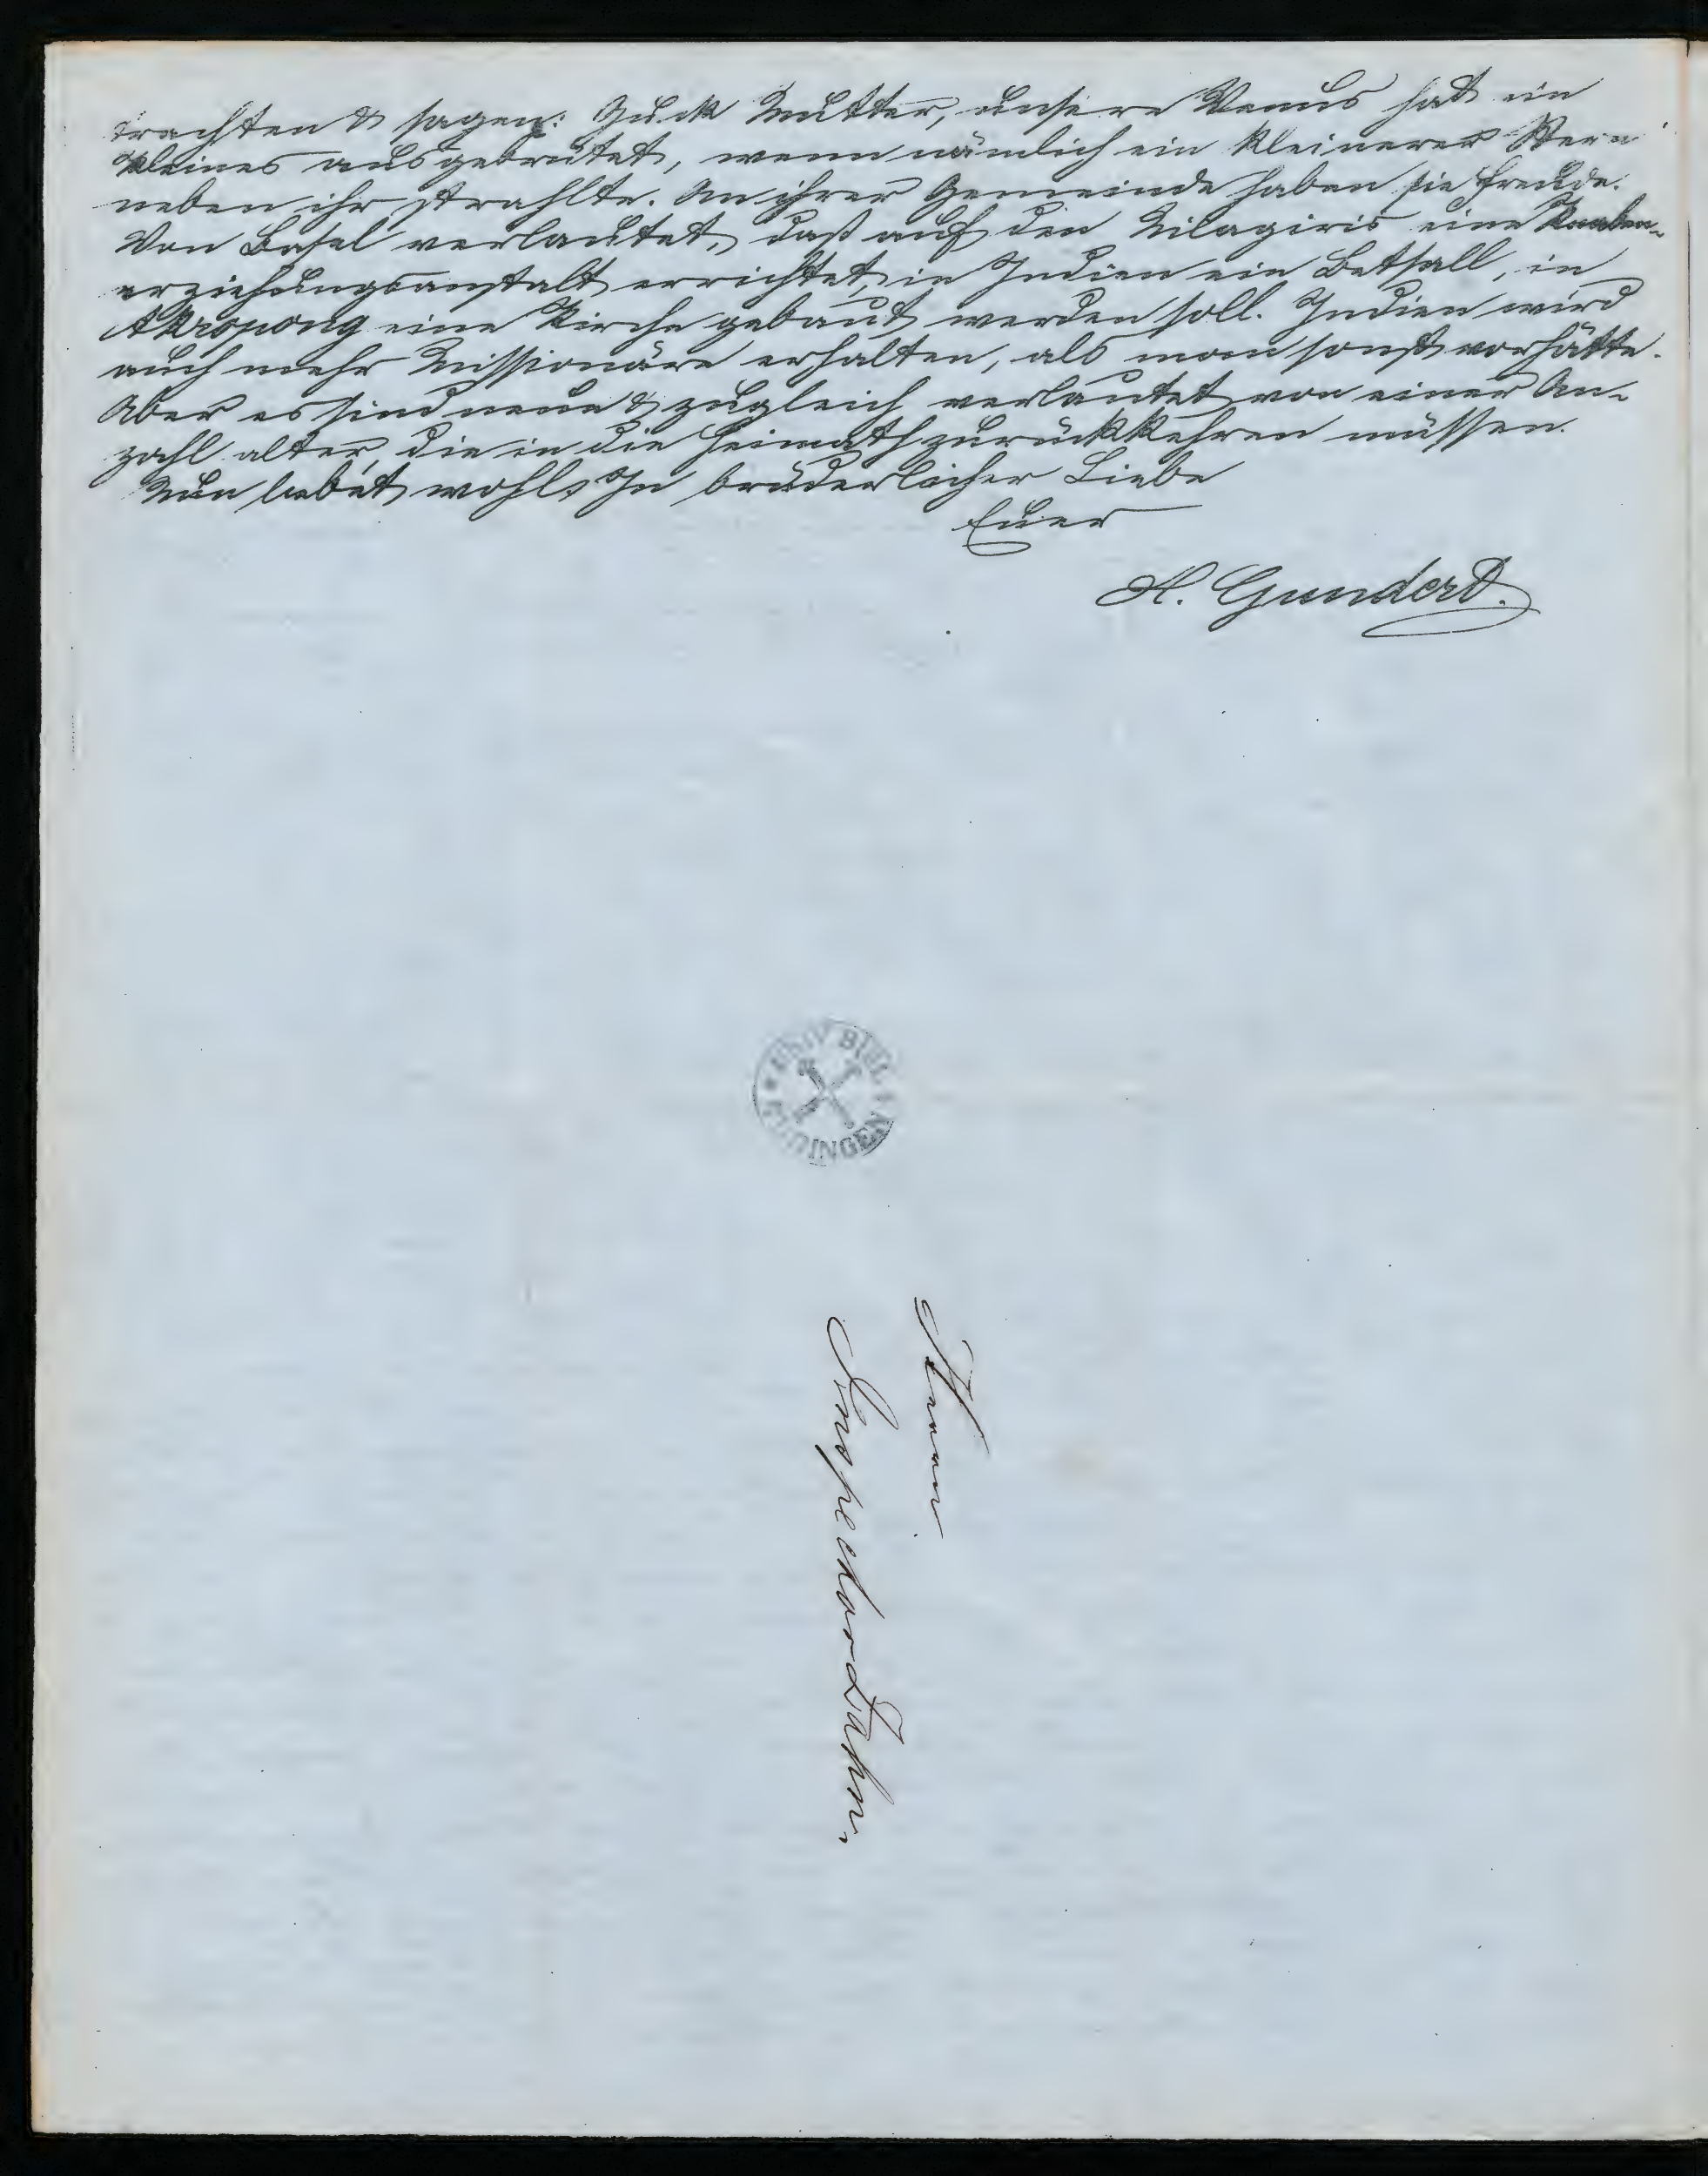 trachten & sagen: Guck Mutter, unsere Venus hat ein
Kleines ausgebrütet, wenn nämlich ein kleinerer Stern
neben ihr strahlte. An ihrer Gemeinde haben sie Freude.
Von Basel verlautet, daß auf den Nilagiris eine Knaben-
erziehungsanstalt errichtet, in Indien ein Betsaal, in
Akropong eine Kirche gebaut werden soll. Indien wird
auch mehr Missionäre erhalten, als man sonst vorhätte.
Aber es sind neue & zugleich verlautet von einer An-
zahl alter die in die Heimath zurückkehren müssen.
Nun lebet wohl. In brüderlicher Liebe
Euer
H. Gundert.
UNIV BIBL
TÜBINGEN
Herrn
Inspector Zahn.